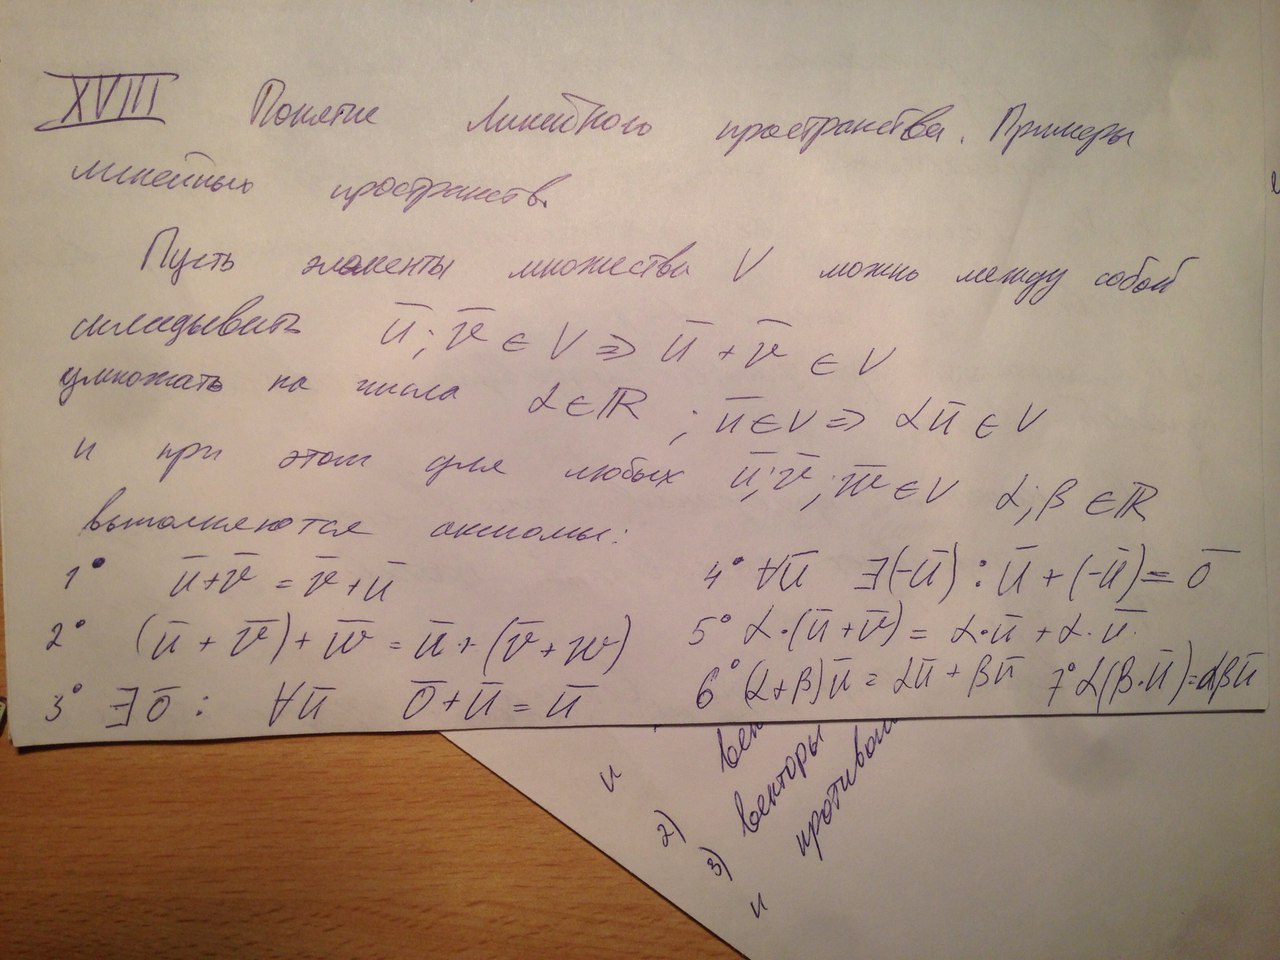 XVIII Понятие линейного пространства. Примеры
линейных пространств.
Пусть элементы множества V можно между собой
складывать ū; v̄ ∈ V ⇒ ū + v̄ ∈ V
умножать на числа α ∈ ℝ ; ū ∈ V ⇒ αū ∈ V
и при этом для любых ū; v̄; w̄ ∈ V α; β ∈ ℝ
выполняются аксиомы:
1° ū + v̄ = v̄ + ū
2° (ū + v̄) + w̄ = ū + (v̄ + w)
3° ∃ō : ∀ū ō + ū = ū
4° ∀ū ∃(-ū) : ū + (-ū) = ō
5° α·(ū + v̄) = α·ū + α·ū.
6° (α+β)ū = αū + βū 7° α(β·ū) = αβū
и
2) векторы
3) противопол
и